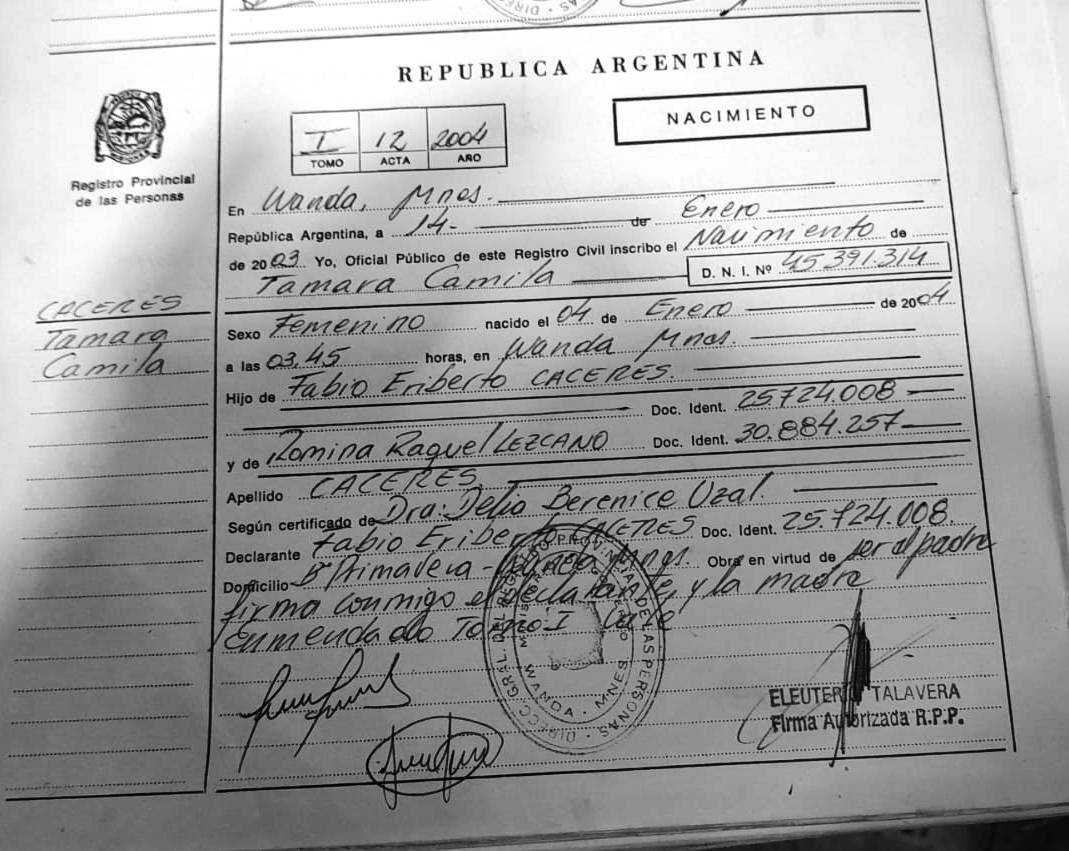 REPUBLICA ARGENTINA
NACIMIENTO
I 12 2004
TOMO ACTA AÑO
Registro Provincial
de las Personas
CACERES
Tamara
Camila
En Wanda, Mnes.
República Argentina, a 14.- de Enero
de 2003 Yo, Oficial Público de este Registro Civil inscribo el Nacimiento de
Tamara Camila D. N. I. Nº 45.391.314
Sexo Femenino nacido el 04 de Enero de 2004
a las 03,45 horas, en Wanda Mnes.
Hijo de Fabio Eriberto CACERES.
Doc. Ident. 25.724.008
y de Romina Raquel LEZCANO Doc. Ident. 30.884.257
Apellido CACERES
Según certificado de Dra: Delia Berenice Uzal.
Declarante Fabio Eriberto CACERES Doc. Ident. 25.724.008.
Domicilio Bº Primavera - Wanda Mnes. Obra en virtud de ser el padre
firma conmigo el declarante, y la madre
Enmendado Tomo I
DIRECC. GRAL. DEL REGISTRO PROVINCIAL DE LAS PERSONAS
WANDA - MNES
ELEUTERIO TALAVERA
Firma Autorizada R.P.P.